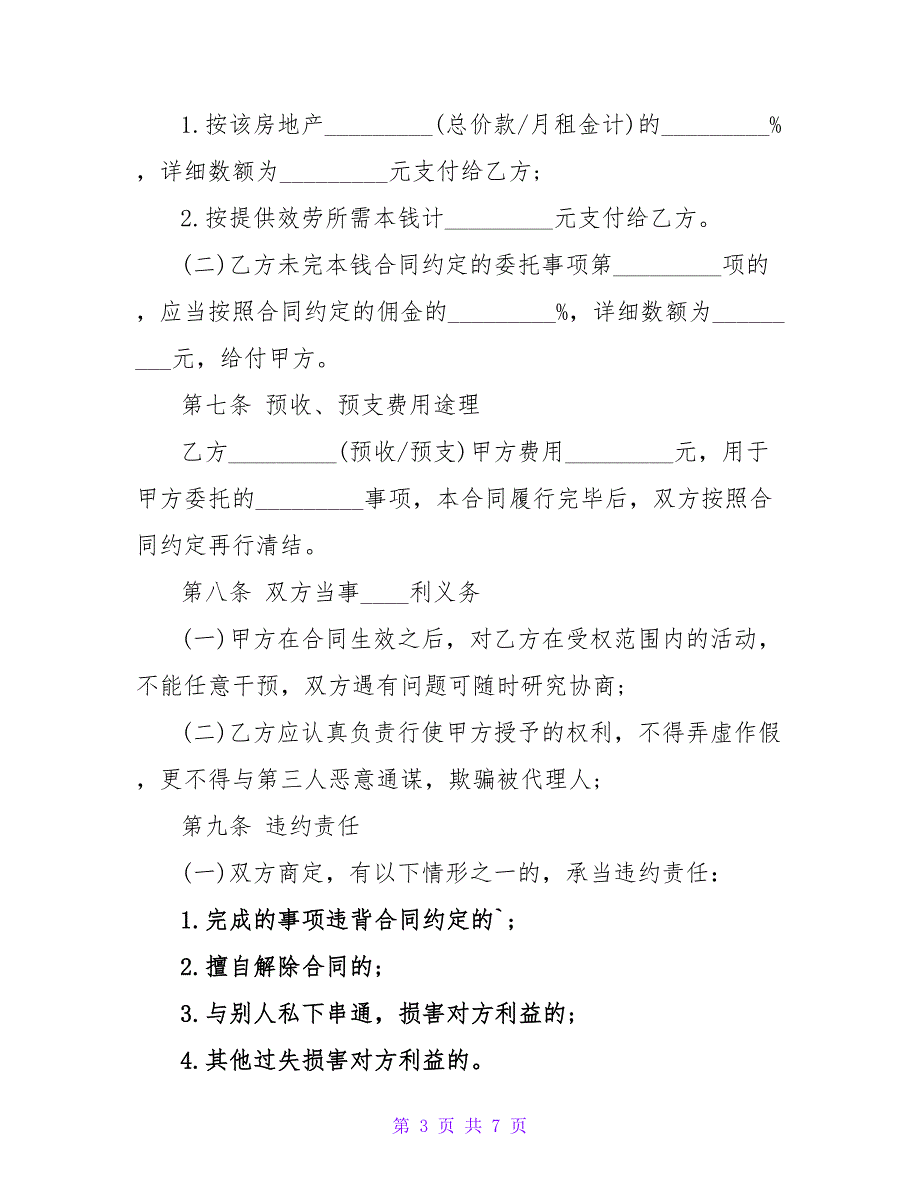 1.按该房地产_________(总价款/月租金计)的_________%
，详细数额为_________元支付给乙方;
2.按提供效劳所需本钱计_________元支付给乙方。
(二)乙方未完本钱合同约定的委托事项第_________项的
，应当按照合同约定的佣金的_________%，详细数额为______
___元，给付甲方。
第七条 预收、预支费用途理
乙方_________(预收/预支)甲方费用_________元，用于
甲方委托的_________事项，本合同履行完毕后，双方按照合
同约定再行清结。
第八条 双方当事____利义务
(一)甲方在合同生效之后，对乙方在受权范围内的活动，
不能任意干预，双方遇有问题可随时研究协商;
(二)乙方应认真负责行使甲方授予的权利，不得弄虚作假
，更不得与第三人恶意通谋，欺骗被代理人;
第九条 违约责任
(一)双方商定，有以下情形之一的，承当违约责任：
1.完成的事项违背合同约定的`;
2.擅自解除合同的;
3.与别人私下串通，损害对方利益的;
4.其他过失损害对方利益的。
第 3 页 共 7 页